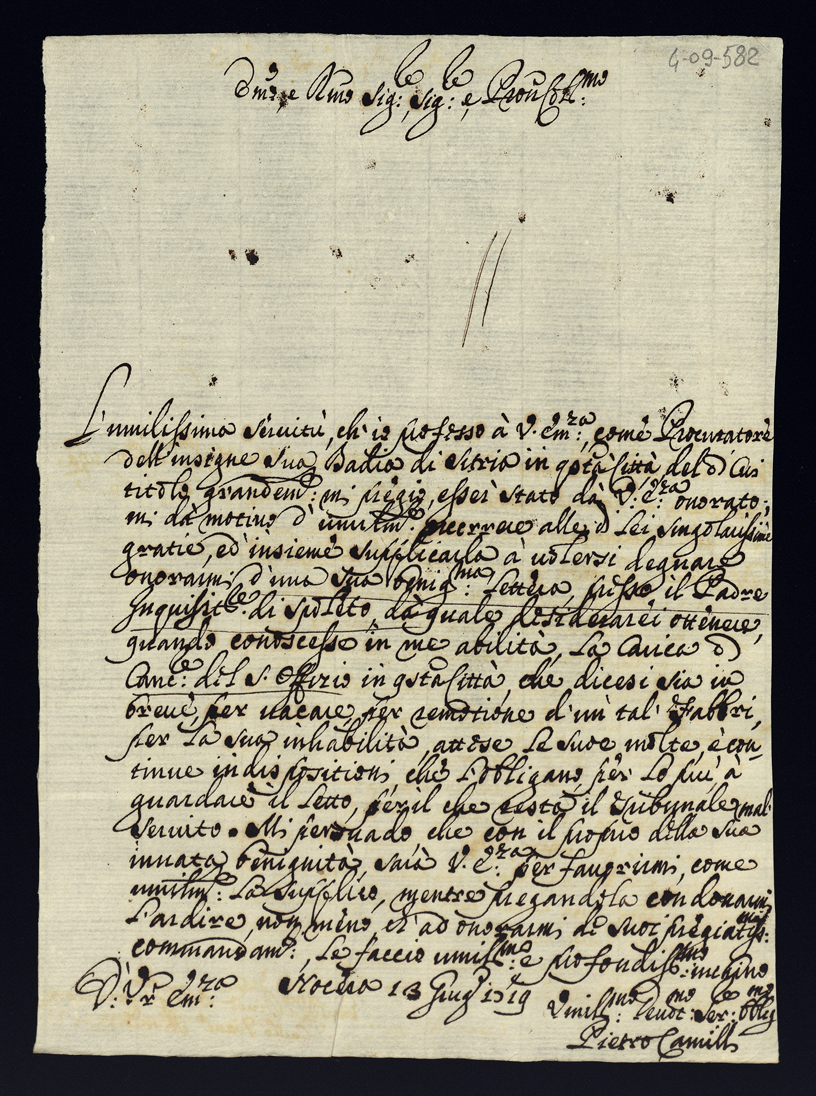 4-09-582
Em̃o, e Rmo Sig:le, Sig:le e Pron Col:mo
L'umilissima servitù, ch'io professo à V. Em:za, come Procuratore
dell'insigne sua Badia di Sitria in qsta Città del di Cui
titolo grandem: mi pregio esser stato da V. E:za onorato;
mi dà motivo d'umilm: ricorrere alle di Lei singolarissime
gratie, ed insieme supplicarla à volersi degnare
onorarmi d'una sua benig:ma lettera, presso il Padre
Inquisit:re di Spoleto, da quale desidererei ottenere,
quando conoscesse in me abilità, la Carica di
Canc:re del S. Offizio in qsta Città, che dicesi sia in
breve per vacare, per remotione d'un tal Fabbri,
per la sua inhabilità, attese le sue molte, e con-
tinue indispositioni che l'obligano per lo più à
guardare il letto, per il che resta il Tribunale mal
servito. Mi persuado che con il proprio della sua
innata benignità, sarà V. E:za per favorirmi, come
umilm: la supplico, mentre pregandola condonarmi
l'ardire, non meno, ch'ad onorarmi de suoi pregiatiss:mi
commandam:, le faccio umiliss:mo e profondiss:mo inchino
D: V: Em:za Nocera 13 Giug 1719
Umilis:mo Devot:mo Ser:re Oblig:mo
Pietro Camilli